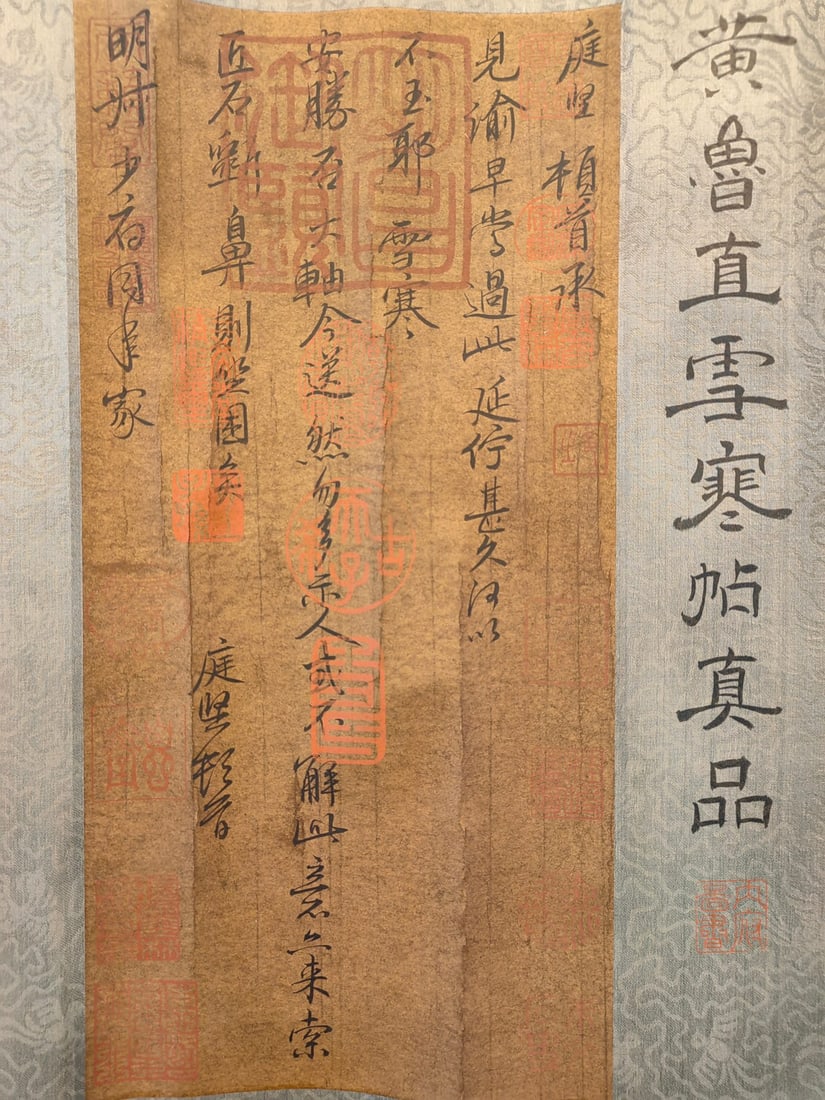 黃魯直雪寒帖真品
庭堅頓首承
見諭早嘗過此延佇甚久何以
不至耶雪寒
安勝否大軸今送然勿多示人或不解此意亦来索
匠石斲鼻則坐困矣 庭堅頓首
明叔少府同年家